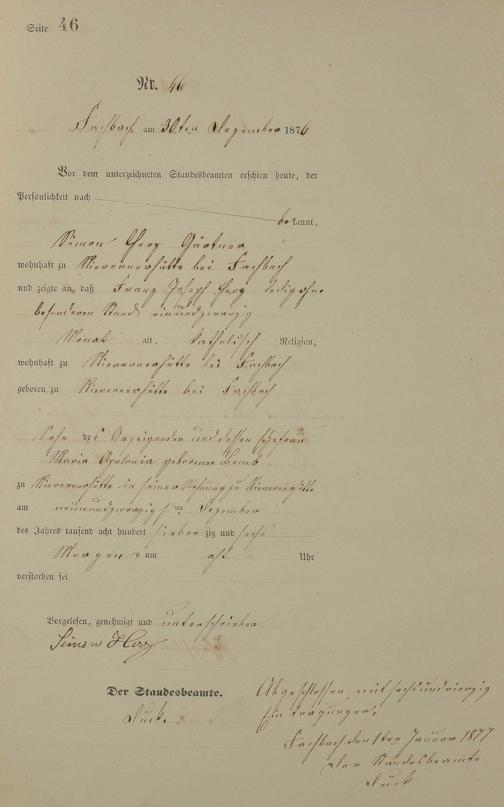 Seite 46
Nr. 46
Fachbach am 30ten Dezember 1876
Vor dem unterzeichneten Standesbeamten erschien heute, der
Persönlichkeit nach
bekannt,
Simon Herz Gärtner
wohnhaft zu Nievernerhütte bei Fachbach
und zeigte an, daß Franz Joseph Herz ledig ohne
besonderen Stand, einundzwanzig
Monat alt, katholischer Religion,
wohnhaft zu Nievernerhütte bei Fachbach
geboren zu Nievernerhütte bei Fachbach
Sohn des Anzeigenden und dessen Ehefrau
Maria Apolonia geborene
zu Nievernerhütte in seiner Wohnung zu Nievernerhütte
am neunundzwanzigsten Dezember
des Jahres tausend acht hundert siebenzig und sechs
Morgens um acht Uhr
verstorben sei
Vorgelesen, genehmigt und unterschrieben
Simon Herz
Der Standesbeamte.
Duck.
Abgeschlossen mit sechsundvierzig
Eintragungen.
Fachbach den 1ten Januar 1877
Der Standesbeamte
Duck